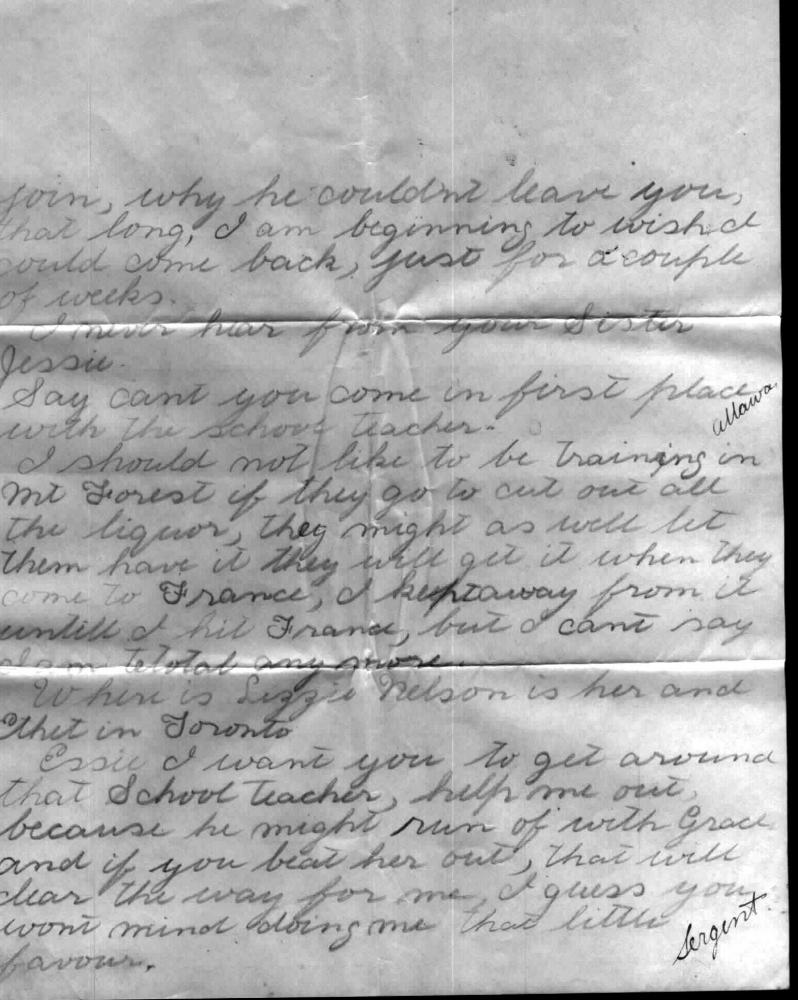 join, why he couldnt leave you,
that long, I am beginning to wish I
could come back, just for a couple
of weeks.
I never hear from your Sister
Jessie.
Say cant you come in first place
with the school teacher.
I should not like to be training in
Mt Forest if they go to cut out all
the liquor, they might as well let
them have it they will get it when they
come to France, I kept away from it
untill I hit France, but I cant say
I am tetotal any more.
Where is Lizzie Nelson is her and
in Toronto
Essie I want you to get around
that School teacher, help me out,
because he might run of with Grace
and if you beat her out, that will
clear the way for me, I guess you
wont mind doing me that little
favour.
Sergent.